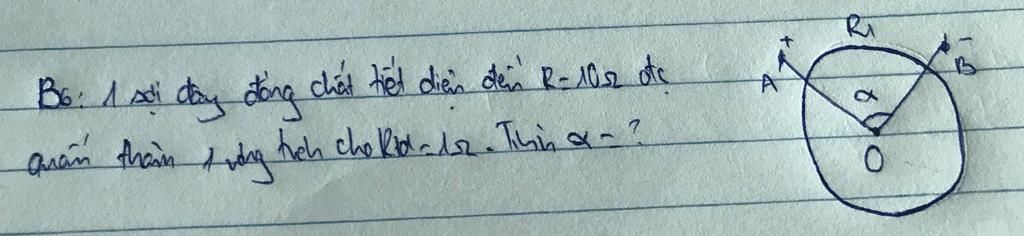 B6: 1 sợi dây đồng chất tiết diện đều R=10Ω đc
quấn thành 1 vòng tròn cho Rtđ=1Ω. Tính α=?
R1
+
-
A
B
α
O